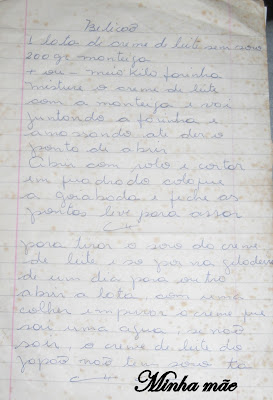 Beliscão
1 lata de creme d leite sem soro
200 gr manteiga
+ ou - meio kilo farinha
misture o creme de leite
com a manteiga e vai
juntando a farinha e
amassando até dar o
ponto di abrir
Abra com rolo e cortar
em quadrado coloque
a goiabada e feche as
pontas leve para assar
para tirar o soro do creme
de leite e so por na geladeira
de um dia para outro
abrir a lata com uma
colher empurar o creme que
sai uma agua; si não
sair o creme de leite do
japão não tem soro ta
Minha mãe